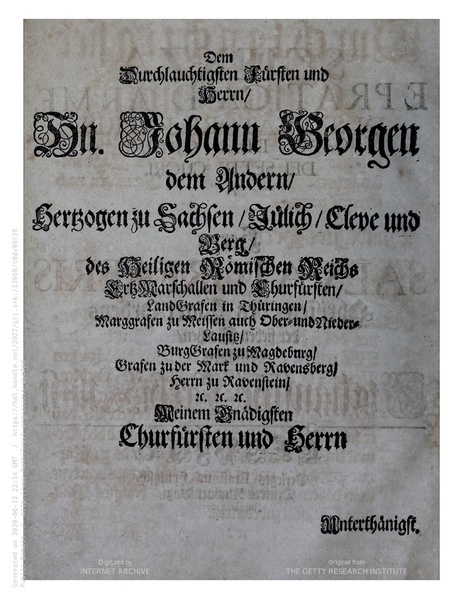 Dem
Durchlauchtigsten Fürsten und
Herrn/
Hn. Johann Georgen
dem Andern/
Hertzogen zu Sachsen / Jülich / Cleve und
Berg/
des Heiligen Römischen Reichs
ErtzMarschallen und Churfürsten/
LandGrafen in Thüringen/
Marggrafen zu Meissen auch Ober-und Nieder-
Lausitz/
BurgGrafen zu Magdeburg/
Grafen zu der Marck und Ravensberg/
Herrn zu Ravenstein/
ꝛc. ꝛc. ꝛc.
Meinem Gnädigsten
Churfürsten und Herrn
Unterthänigst.
Digitized by
INTERNET ARCHIVE
Original from
THE GETTY RESEARCH INSTITUTE